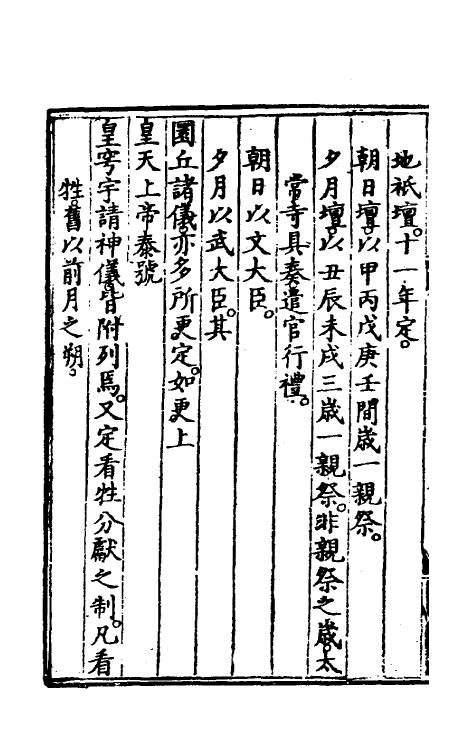 地祇壇。十一年定。
朝日壇。以甲丙戊庚壬間歲一親祭。
夕月壇。以丑辰未戌三歲一親祭。非親祭之歲。太
常寺具奏遣官行禮。
朝日以文大臣。
夕月以武大臣。其
圜丘諸儀。亦多所更定。如更上
皇天上帝泰號
皇穹宇請神儀。皆附列焉。又定看牲分獻之制。凡看
牲。舊以前月之朔。